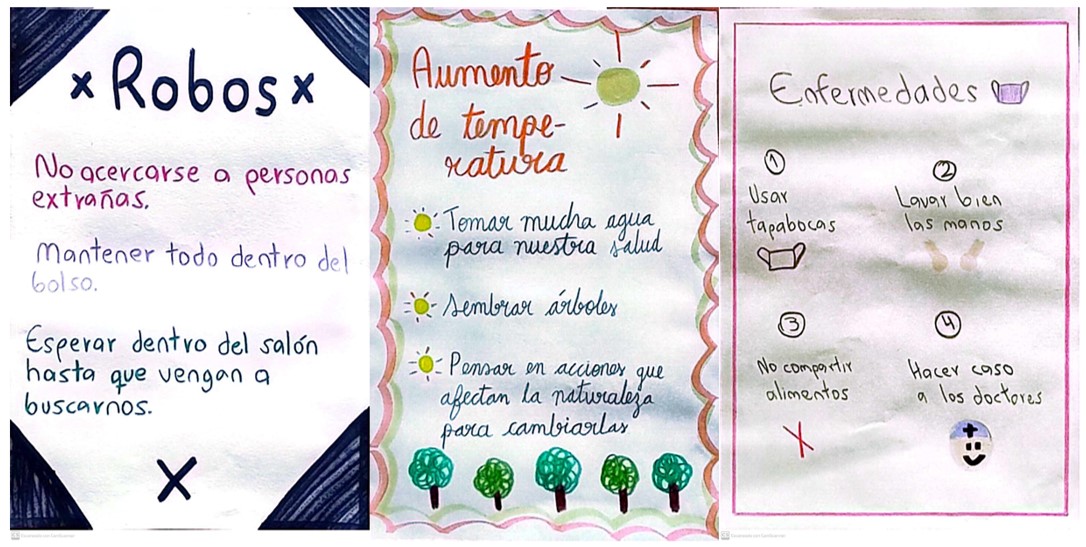 x Robos x
No acercarse a personas
extrañas.
Mantener todo dentro del
bolso.
Esperar dentro del salón
hasta que vengan a
buscarnos.
X
Aumento
de tempe-
ratura
Tomar mucha agua
para nuestra salud
Sembrar árboles
Pensar en acciones que
afectan la naturaleza
para cambiarlas
Enfermedades
1
Usar
tapabocas
2
Lavar bien
las manos
3
No compartir
alimentos
X
4
Hacer caso
a los doctores
Escaneado con CamScanner
Escaneado con CamScanner